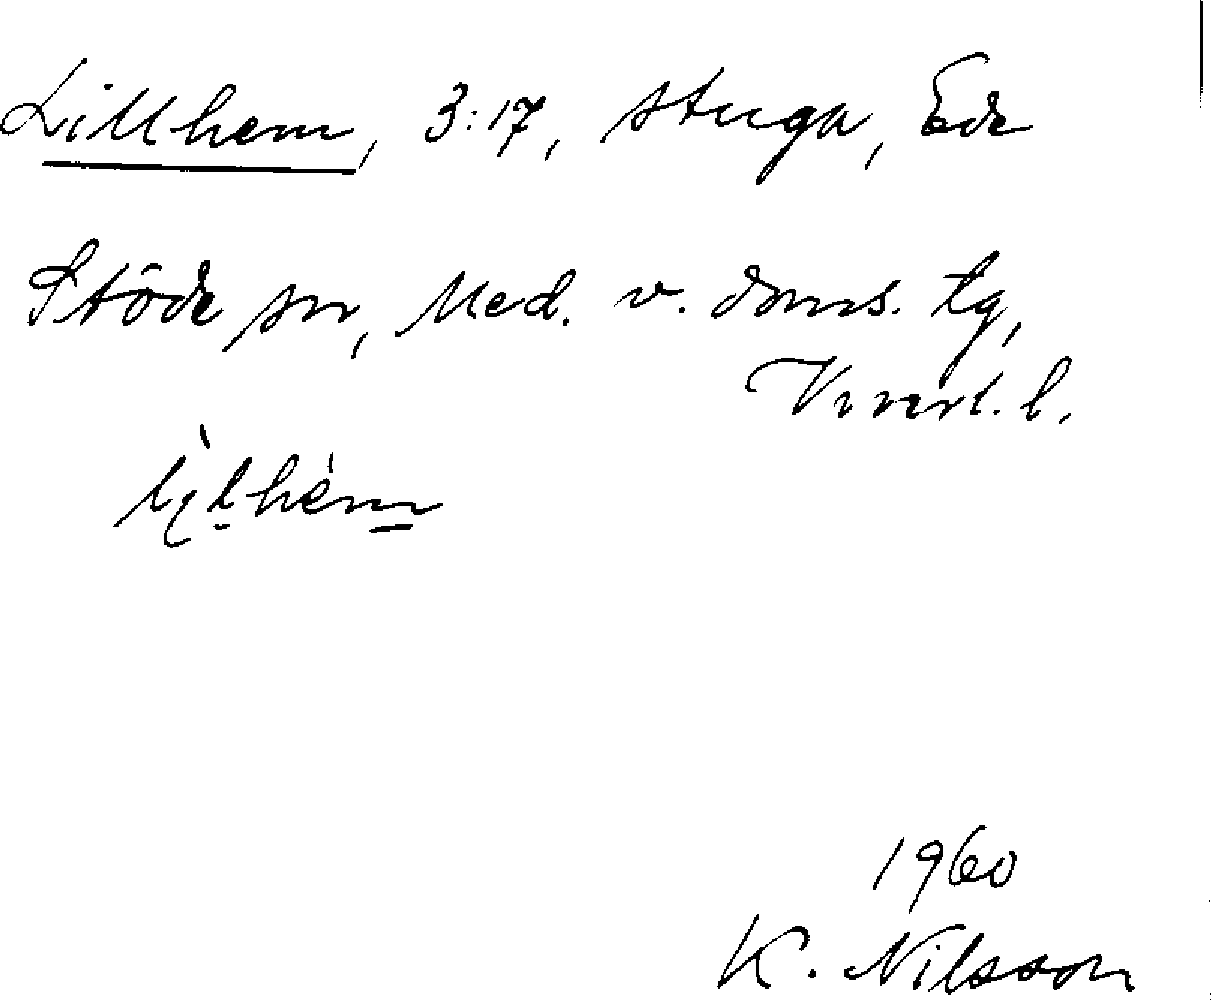 Lillhem, 3:17, stuga, Ede
Stöde sn, Med. v. doms. tg,
Vnorl. l.
1960
K. Nilsson